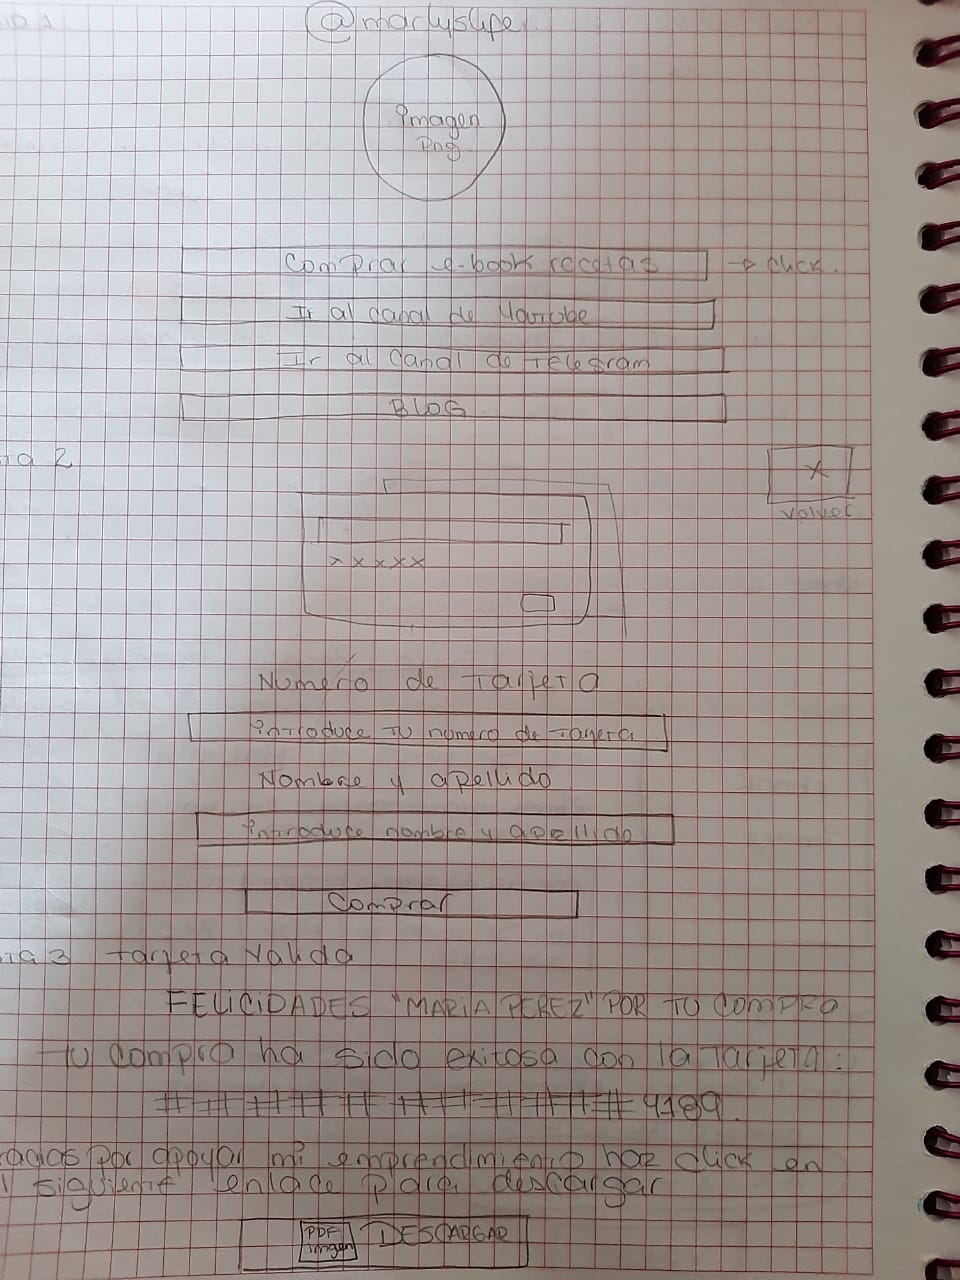 @marlyslipe
imagen
png
Comprar e-book recetas → click.
Ir al canal de Youtube
Ir al canal de Telegram
BLOG
2
x
volver
x x x x x
Numero de Tarjeta
introduce tu numero de Tarjeta
Nombre y apellido
introduce nombre y apellido
Comprar
3 tarjeta valida
FELICIDADES "MARIA PEREZ" POR TU COMPRA
TU compra ha sido exitosa con la Tarjeta:
############ 4189
por apoyar mi emprendimiento haz click en
siguiente enlace para descargar
PDF
imgen
DESCARGAR